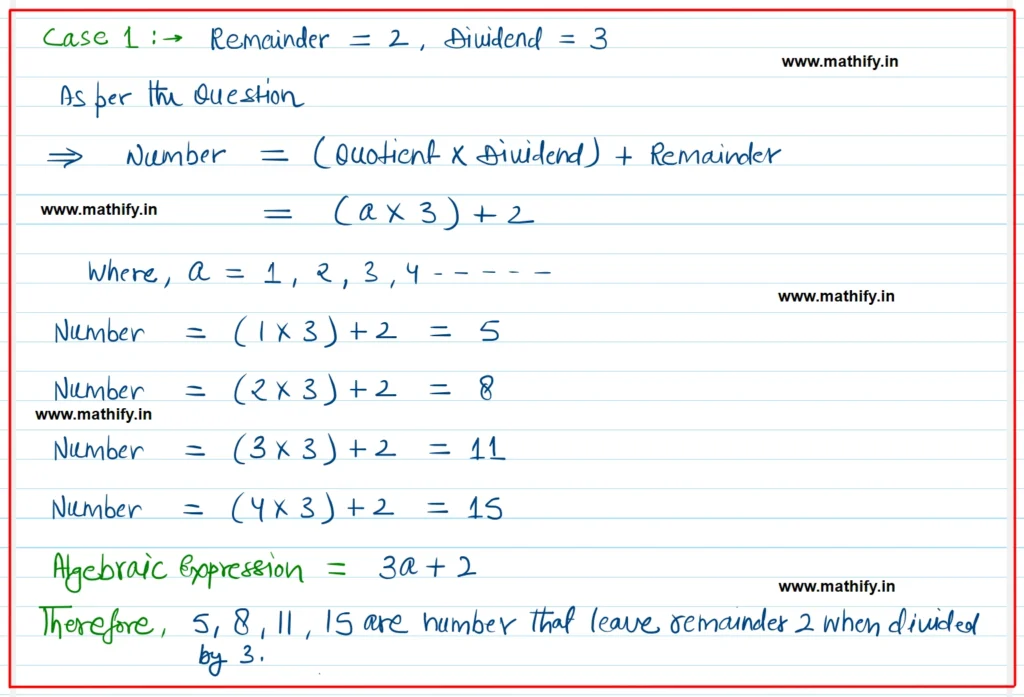 Case 1 :→ Remainder = 2, Dividend = 3
www.mathify.in
As per the Question
⇒ Number = (Quotient x Dividend) + Remainder
www.mathify.in
= (a x 3) + 2
Where, a = 1, 2, 3, 4 - - - - -
www.mathify.in
Number = (1 x 3) + 2 = 5
Number = (2 x 3) + 2 = 8
www.mathify.in
Number = (3 x 3) + 2 = 11
Number = (4 x 3) + 2 = 15
Algebraic Expression = 3a + 2
www.mathify.in
Therefore, 5, 8, 11, 15 are number that leave remainder 2 when divided
by 3.